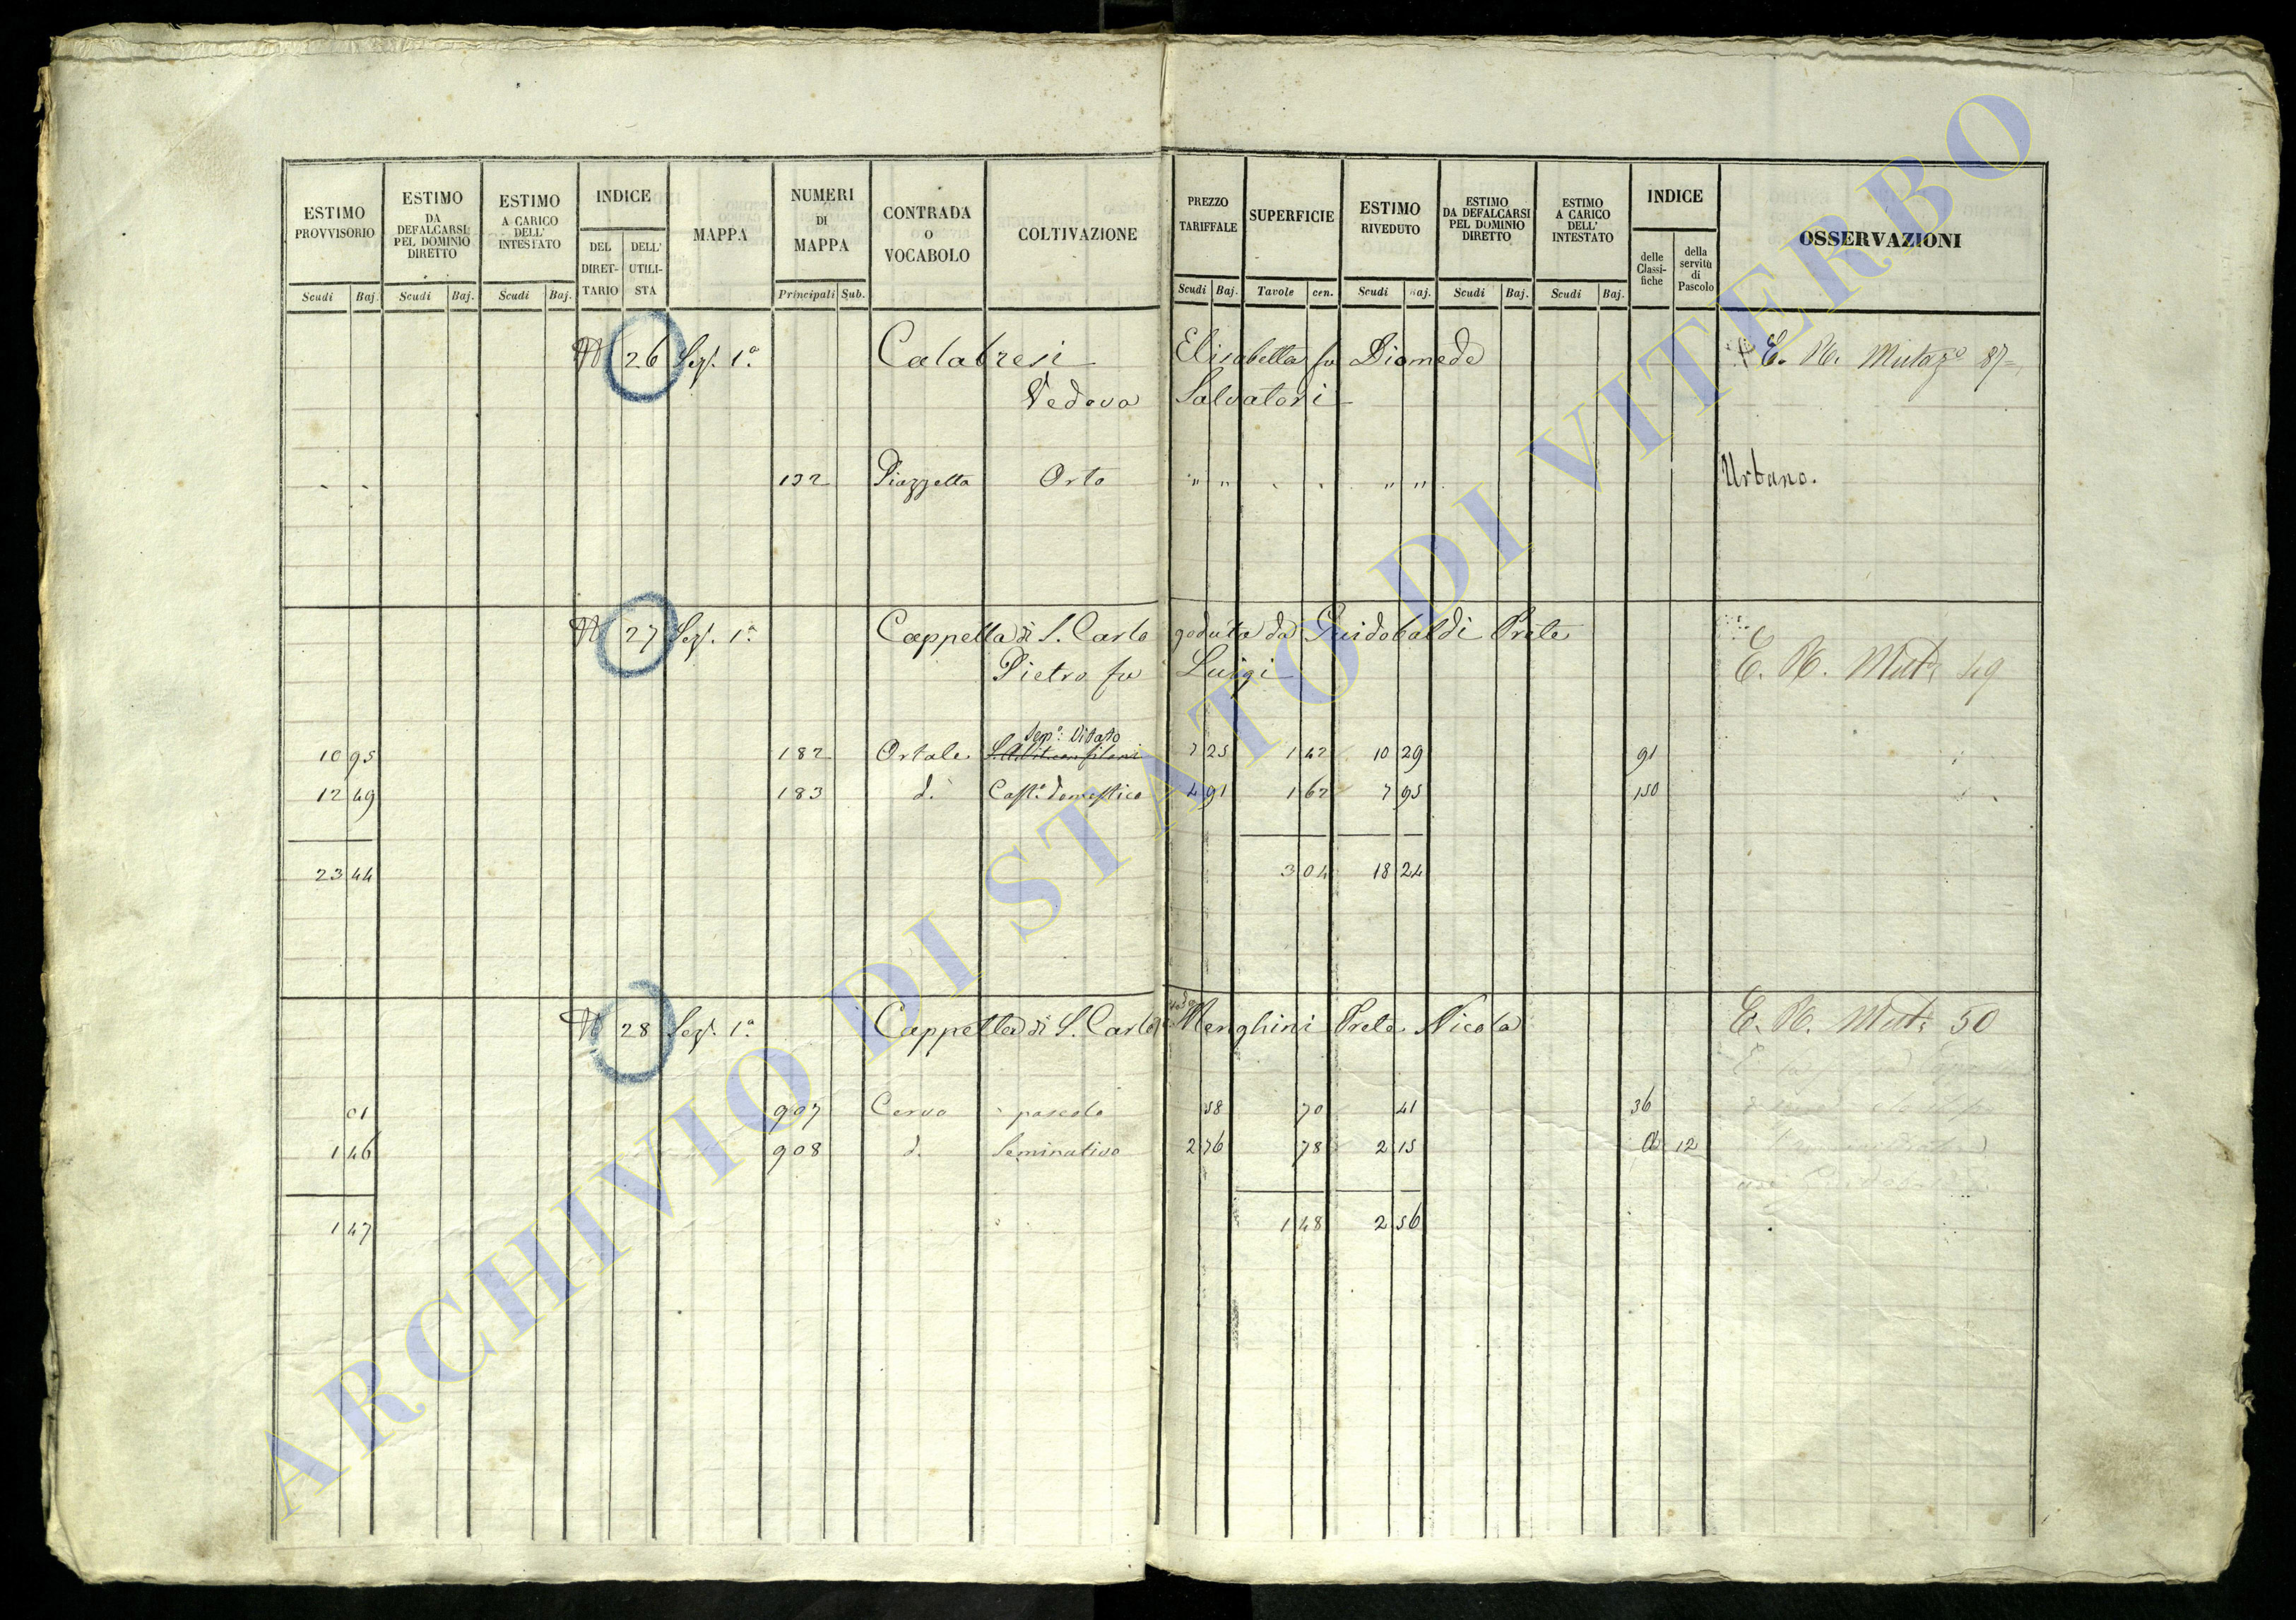 ESTIMO PROVVISORIO
Scudi Baj.
ESTIMO DA DEFALCARSI PEL DOMINIO DIRETTO
Scudi Baj.
ESTIMO A CARICO DELL' INTESTATO
Scudi Baj.
INDICE
DEL DIRET- TARIO
DELL' UTILI- STA
MAPPA
NUMERI DI MAPPA
Principali Sub.
CONTRADA O VOCABOLO
COLTIVAZIONE
PREZZO TARIFFALE
Scudi Baj.
SUPERFICIE
Tavole cen.
ESTIMO RIVEDUTO
Scudi Baj.
ESTIMO DA DEFALCARSI PEL DOMINIO DIRETTO
Scudi Baj.
ESTIMO A CARICO DELL' INTESTATO
Scudi Baj.
INDICE
delle Classi- fiche
della servitù di Pascolo
OSSERVAZIONI
N 26 Sez. 1a Calabresi Elisabetta fu Diomede E. N. Mutazo 87
Vedova Salvatori
132 Piazzetta Orto " " " " Urbano.
N 27 Sez. 1a Cappella di S. Carlo goduta da Guidobaldi Prete
Pietro fu Luigi E. N. Mut. 49
Semo Vitato
10 95 182 Ortale 7 25 1 42 10 29 91
12 49 183 d. Casto domestico 4 91 1 62 7 95 150
23 44 3 04 18 24
N 28 Sez. 1a Cappella di S. Carlo Menghini Prete Nicola E. N. Mut. 50
01 907 Cervo pascolo 58 70 41 36
1 46 908 d. Seminativo 2 76 78 2 15 12
1 47 1 48 2 56
ARCHIVIO DI STATO DI VITERBO